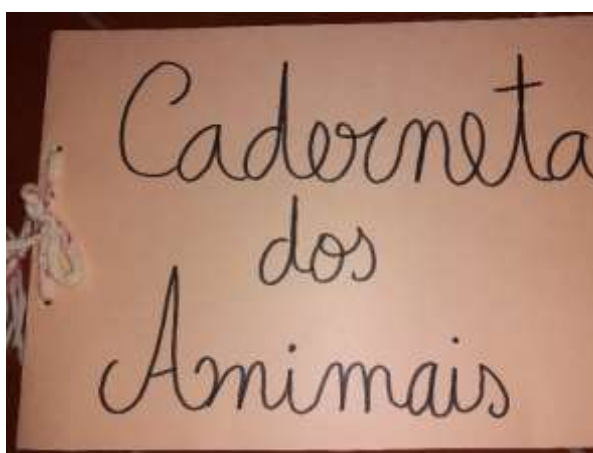 Caderneta
dos
Animais